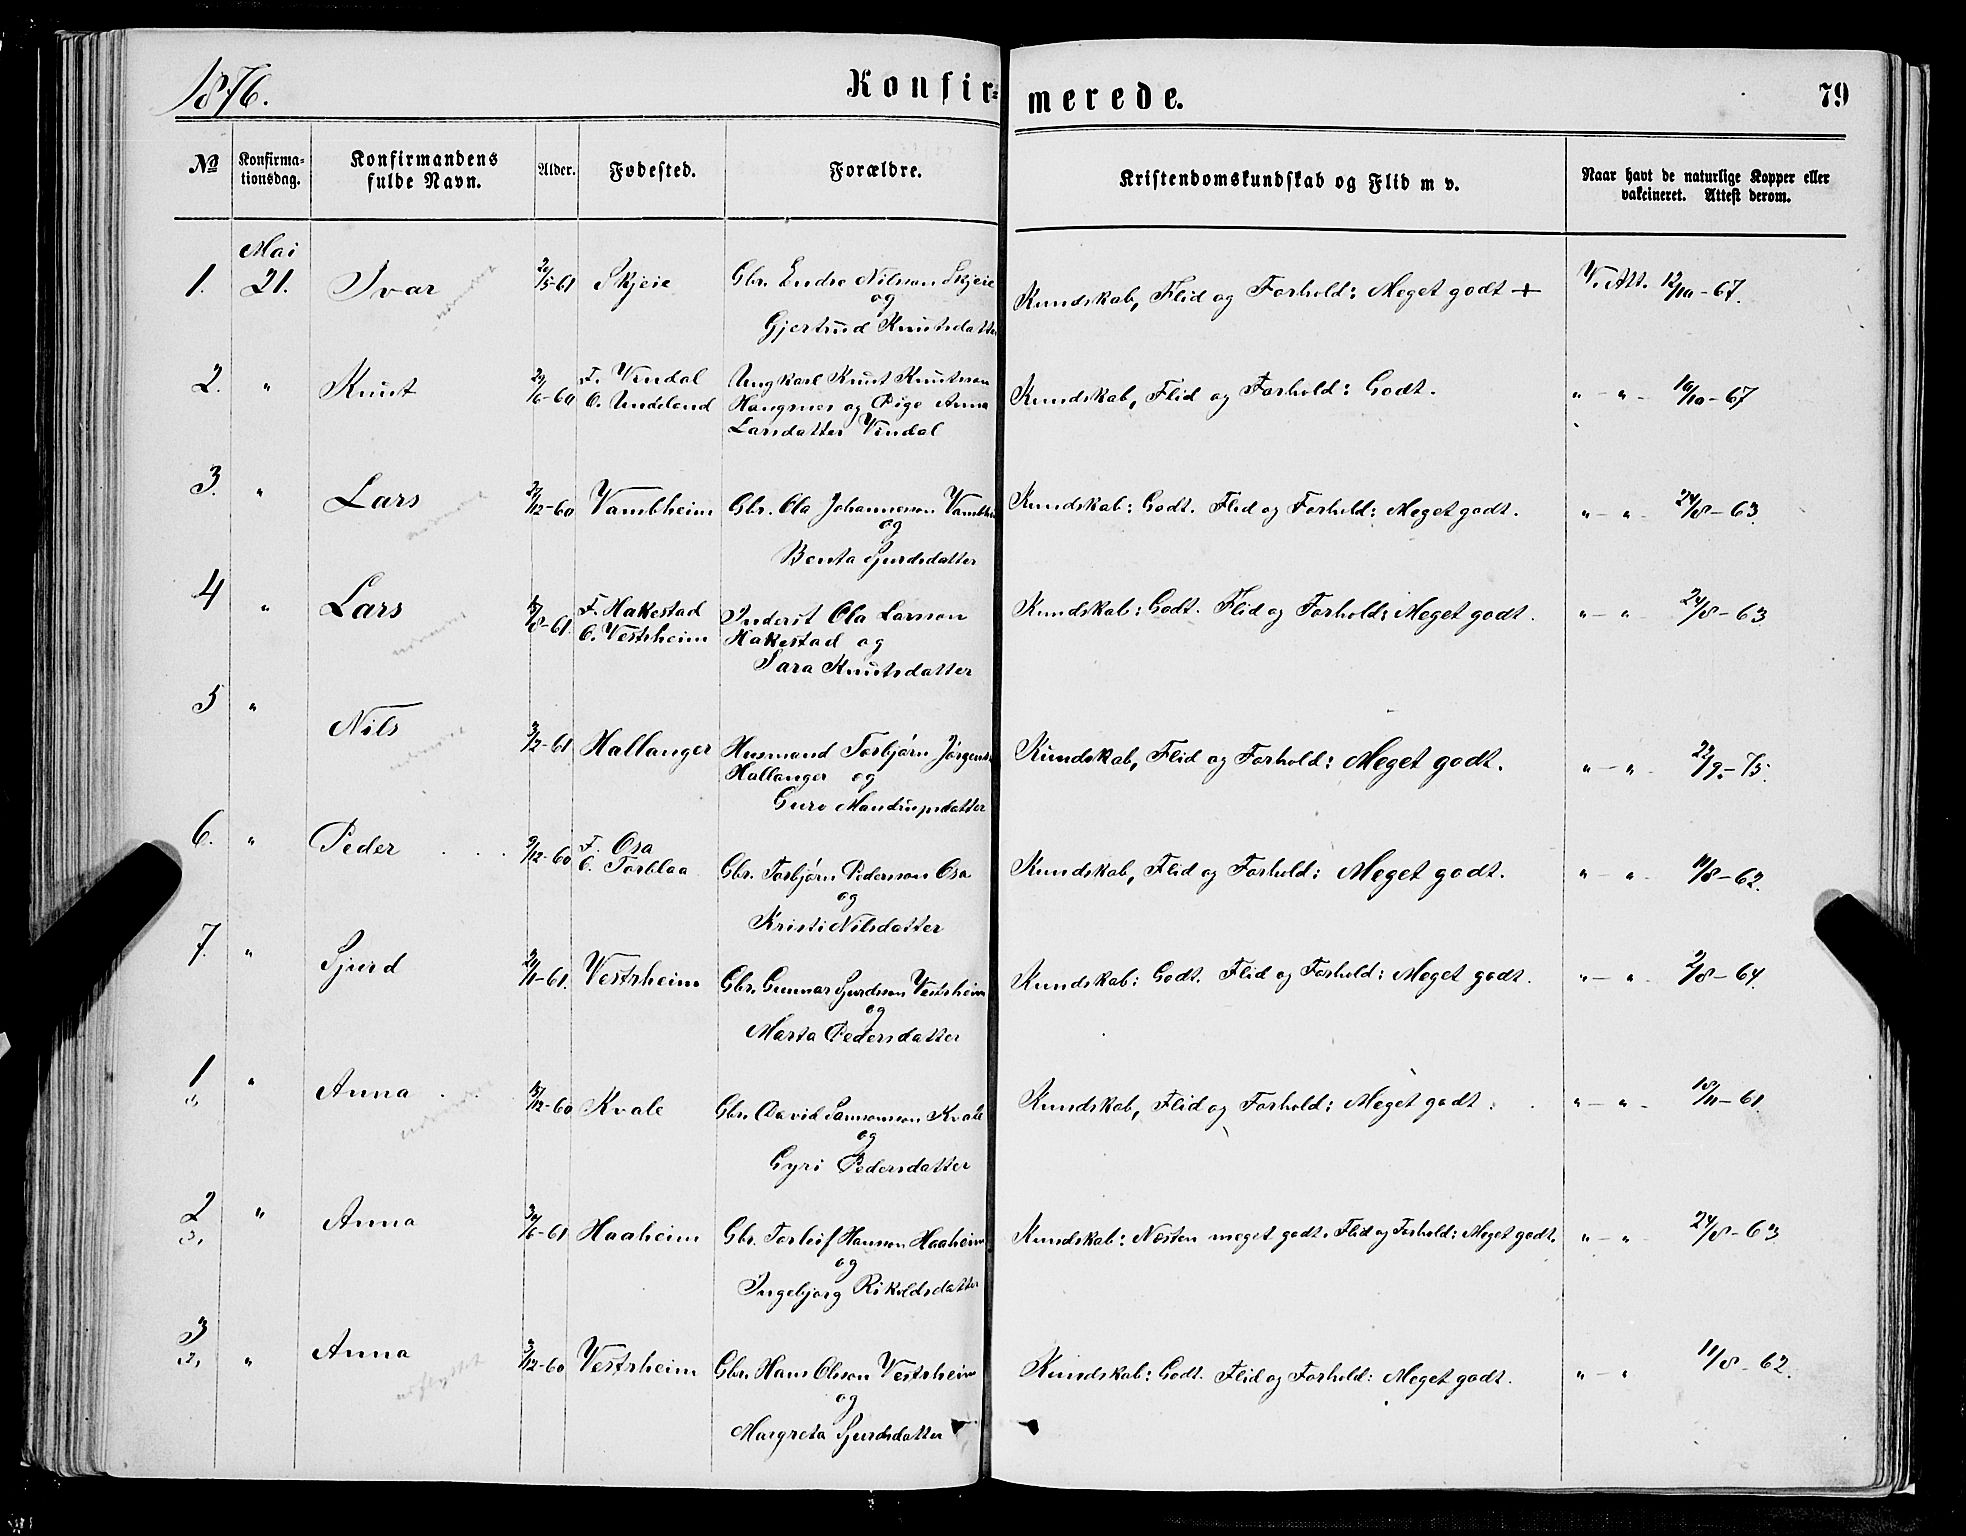 1876.
Konfir-
merede.
79
No
Konfirma-
tionsdag.
Konfirmandens
fulde Navn.
Alder.
Fødested.
Forældre.
Kristendomskundskab og Flid m v.
Naar havt de naturlige Kopper eller
vakcineret. Attest derom.
Mai
1. 21. Ivar /5-61 Skjeie Gbr. Endre Nilsson Skjeie
og
Gjertrud Knutsdatter
Kundskab, Flid og Forhold: Meget godt + V. Att. 12/10-67.
2. " Knut /6-60 F. Vindal Ungkarl Knut Knutsson
O. Undeland Hangsnes og Pige Anna
Larsdatter Vindal
Kundskab, Flid og Forhold: Godt. " - " - 10/10-67
3. " Lars /12-60 Vambheim Gbr. Ola Johannesson Vambhei
og
Benta Sjurdsdatter
Kundskab: Godt. Flid og Forhold: Meget godt. " - " - 24/8-63
4 " Lars /8-61. F. Hakestad Inderst Ola Larsson
O. Vestrheim Hakestad og
Sara Knutsdatter
Kundskab: Godt. Flid og Forhold: Meget godt. " - " - 24/8-63
5 " Nils 3/2-61 Hallanger Husmand Torbjørn Jørgens
Hallanger og
Guro Mandrupsdatter
Kundskab, Flid og Forhold: Meget godt. " - " - 22/9-75.
6. " Peder 9/12-60 F. Osa
O. Torblaa Gbr. Torbjørn Pedersson Osa
og
Kristi Nilsdatter
Kundskab, Flid og Forhold: Meget godt. " - " - 11/8-62.
7. " Sjurd /1-61. Vestrheim Gbr. Gunnar Sjurdsson Vestrheim
og
Marta Pedersdatter
Kundskab: Godt. Flid og Forhold: Meget godt. " - " - 2/8-64.
1 " Anna /12-60 Kvale Gbr. David Samsonson Kvale
og
Gyri Pedersdatter
Kundskab, Flid og Forhold: Meget godt. " - " - 18/11-61
2 " Anna 30/6-61 Haaheim Gbr. Torleif Hansson Haaheim
og
Ingebjørg Rikoldsdatter
Kundskab: Næsten meget godt. Flid og Forhold: Meget godt. " - " - 24/8-63
3 " Anna 3/12-60 Vestrheim Gbr. Hans Olsson Vestrheim
og
Margreta Sjurdsdatter
Kundskab: Godt. Flid og Forhold: Meget godt. " - " 11/8-62.